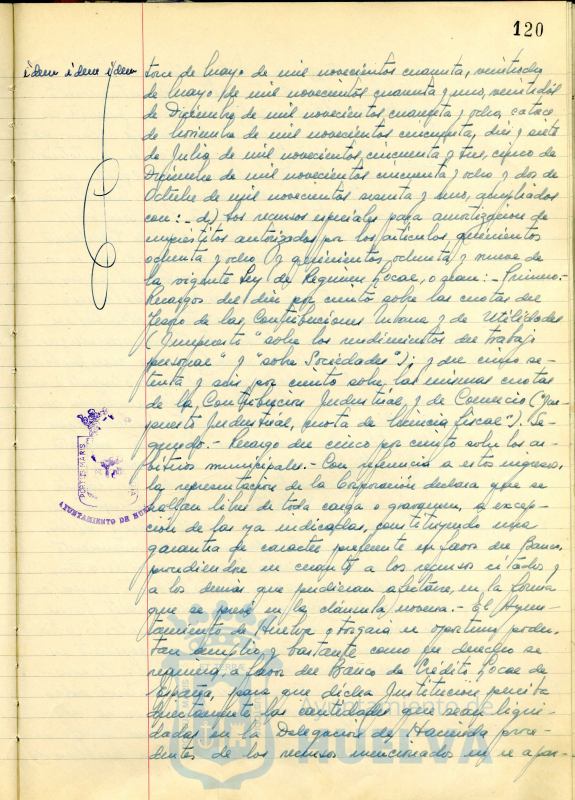 120
idem idem idem
torce de Mayo de mil novecientos cuarenta, veintiocho
de Mayo de mil novecientos cuarenta y uno, veintidós
de Diciembre de mil novecientos cuarenta y ocho, catorce
de Noviembre de mil novecientos cincuenta, diez y siete
de Julio de mil novecientos cincuenta y tres, cinco de
Diciembre de mil novecientos cincuenta y ocho y dos de
Octubre de mil novecientos sesenta y uno, ampliados
con: - d) Los recursos especiales para amortización de
empréstitos autorizados por los artículos quinientos
ochenta y ocho y quinientos ochenta y nueve de
la vigente Ley de Regimen Local, o sean: - Primero:
Recargos del diez por ciento sobre las cuotas del
Tesoro de las Contribuciones Urbana y de Utilidades
(Impuesto "sobre los rendimientos del trabajo
personal" y "sobre Sociedades"); y del cinco se-
tenta y seis por ciento sobre las mismas cuotas
de la Contribucion Industrial y de Comercio ("Im-
puesto Industrial, cuota de licencia fiscal"). Se-
gundo. - Recargo del cinco por ciento sobre los ar-
bitrios municipales. - Con referencia a estos ingresos,
la representacion de la Corporación declara que se
hallan libres de toda carga o gravamen, a excep-
ción de las ya indicadas, constituyendo una
garantia de caracter preferente en favor del Banco,
procediendose en cuanto a los recursos citados y
a los demás que pudieran afectarse, en la forma
que se prevé en la cláusula novena. - El Ayun-
tamiento de Huelva otorgara el oportuno poder,
tan amplio y bastante como en derecho se
requiera, a favor del Banco de Crédito Local de
España, para que dicha Institución perciba
directamente las cantidades que sean liqui-
dadas en la Delegacion de Hacienda proce-
dentes de los recursos mencionados en el apar-
PORTUS MARIS
AYUNTAMIENTO DE HUELVA
Ayuntamiento de
HUELVA